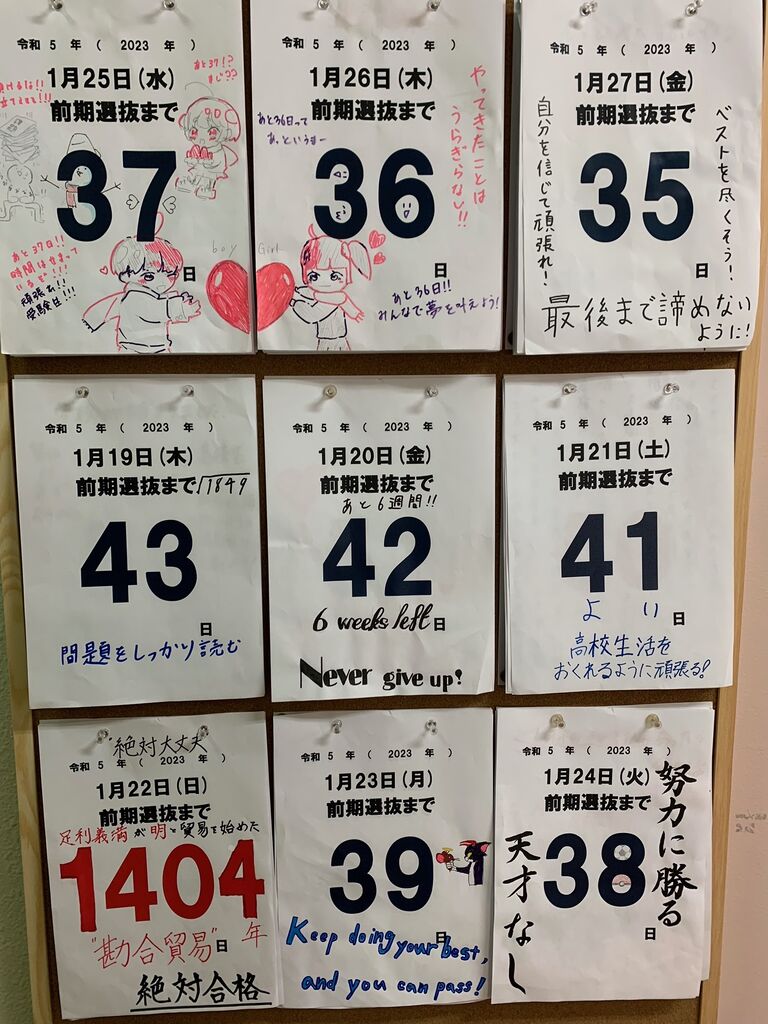 令和 5 年 ( 2023 年 )
1月25日(水)
前期選抜まで
37
日
あと37!?
まじ??
あと37日!!
時間は止まって
頑張れ!!
受験生!!!
boy
令和 5 年 ( 2023 年 )
1月26日(木)
前期選抜まで
36
日
あと36日って
あっというまー
やってきたことは
うらぎらない!!
Girl
あと36日!!
みんなで夢を叶えよう!
令和 5 年 ( 2023 年 )
1月27日(金)
前期選抜まで
35
日
ベストを尽くそう!
自分を信じて頑張れ!
最後まで諦めない
ように!
令和 5 年 ( 2023 年 )
1月19日(木)
前期選抜まで
√1849
43
日
問題をしっかり読む
令和 5 年 ( 2023 年 )
1月20日(金)
前期選抜まで
あと6週間!!
42
日
6 weeks left
Never give up!
令和 5 年 ( 2023 年 )
1月21日(土)
前期選抜まで
41
日
よい
高校生活を
おくれるように頑張る!
絶対大丈夫
令和 5 年 ( 2023 年 )
1月22日(日)
前期選抜まで
足利義満が明と貿易を始めた
1404
日
年
"勘合貿易"
絶対合格
令和 5 年 ( 2023 年 )
1月23日(月)
前期選抜まで
39
日
Keep doing your best,
and you can pass!
令和 5 年 ( 2023 年 )
1月24日(火)
前期選抜まで
38
日
努力に勝る
天才なし